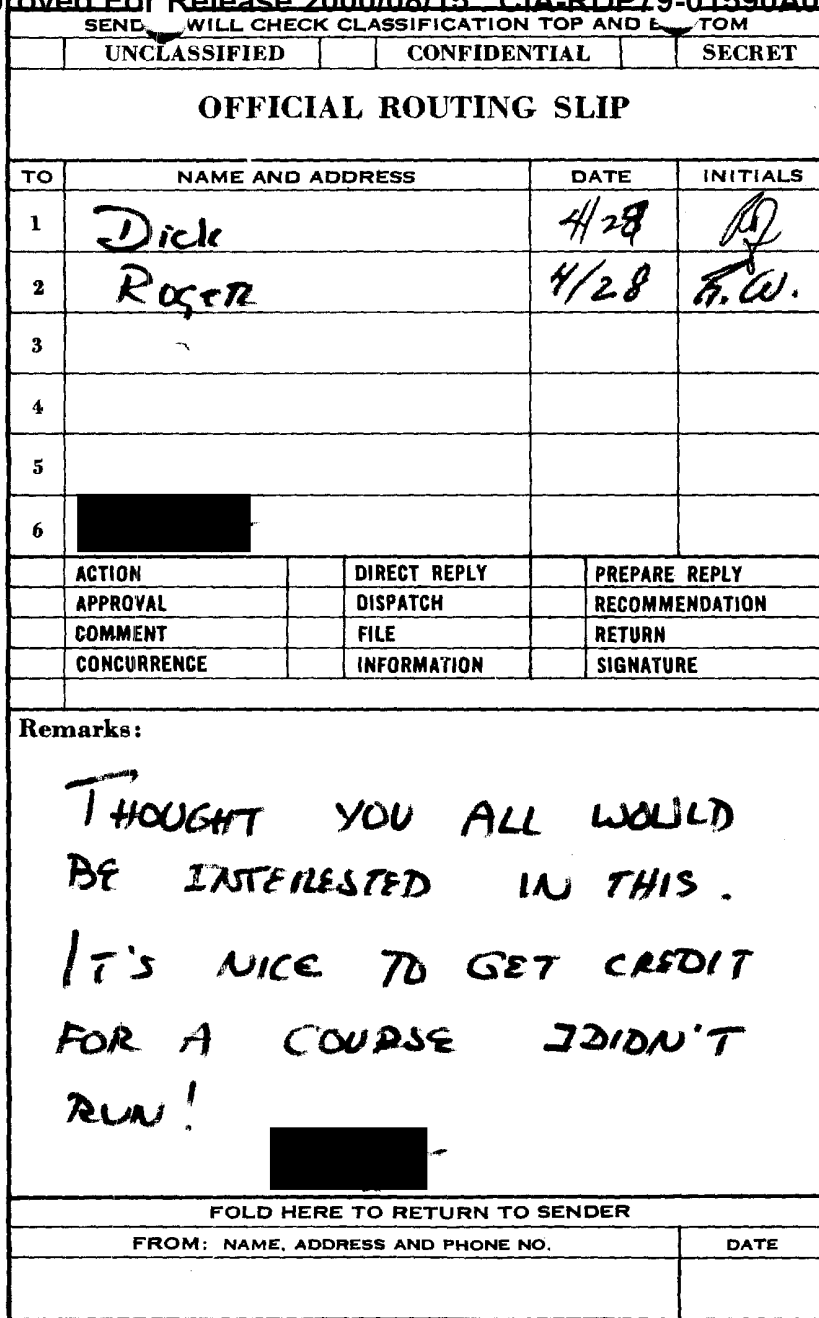 Approved For Release 2000/08/15 : CIA-RDP79-01590A0
SENDER WILL CHECK CLASSIFICATION TOP AND BOTTOM
UNCLASSIFIED CONFIDENTIAL SECRET
OFFICIAL ROUTING SLIP
TO NAME AND ADDRESS DATE INITIALS
1 Dick 4/28
2 Roger 4/28 R.W.
3
4
5
6
ACTION DIRECT REPLY PREPARE REPLY
APPROVAL DISPATCH RECOMMENDATION
COMMENT FILE RETURN
CONCURRENCE INFORMATION SIGNATURE
Remarks:
THOUGHT YOU ALL WOULD
BE INTERESTED IN THIS.
IT'S NICE TO GET CREDIT
FOR A COURSE I DIDN'T
RUN!
FOLD HERE TO RETURN TO SENDER
FROM: NAME, ADDRESS AND PHONE NO. DATE